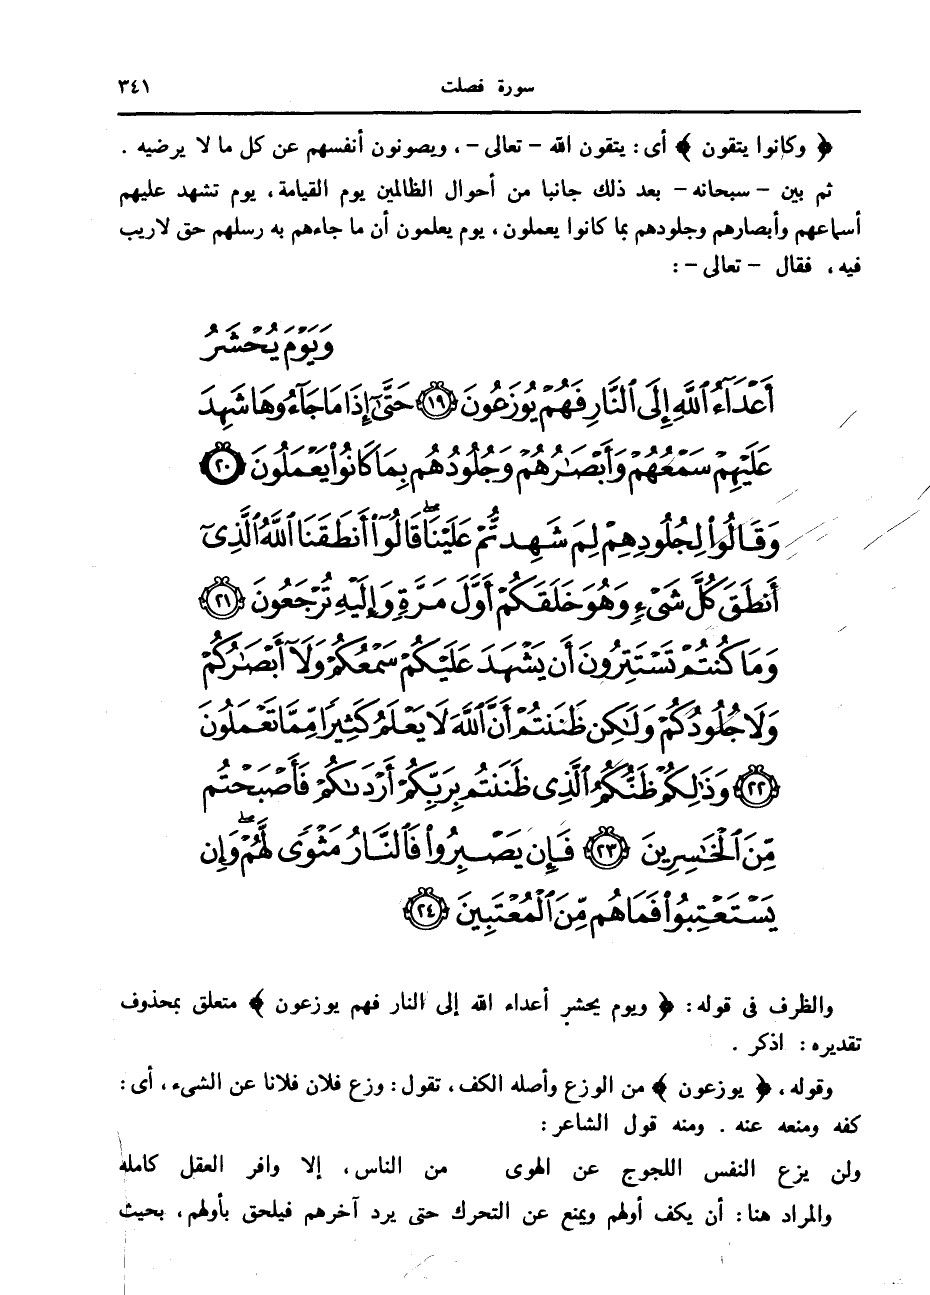 سورة فصلت ٣٤١
﴿ وكانوا يتقون ﴾ أى : يتقون الله – تعالى – ، ويصونون أنفسهم عن كل ما لا يرضيه .
ثم بين – سبحانه – بعد ذلك جانبا من أحوال الظالمين يوم القيامة ، يوم تشهد عليهم
أسماعهم وأبصارهم وجلودهم بما كانوا يعملون ، يوم يعلمون أن ما جاءهم به رسلهم حق لاريب
فيه ، فقال – تعالى – :
وَيَوْمَ يُحْشَرُ
أَعْدَآءُ ٱللَّهِ إِلَى ٱلنَّارِ فَهُمْ يُوزَعُونَ ١٩ حَتَّىٰٓ إِذَا مَا جَآءُوهَا شَهِدَ
عَلَيْهِمْ سَمْعُهُمْ وَأَبْصَٰرُهُمْ وَجُلُودُهُم بِمَا كَانُوا۟ يَعْمَلُونَ ٢٠
وَقَالُوا۟ لِجُلُودِهِمْ لِمَ شَهِدتُّمْ عَلَيْنَا ۖ قَالُوٓا۟ أَنطَقَنَا ٱللَّهُ ٱلَّذِىٓ
أَنطَقَ كُلَّ شَىْءٍ وَهُوَ خَلَقَكُمْ أَوَّلَ مَرَّةٍ وَإِلَيْهِ تُرْجَعُونَ ٢١
وَمَا كُنتُمْ تَسْتَتِرُونَ أَن يَشْهَدَ عَلَيْكُمْ سَمْعُكُمْ وَلَآ أَبْصَٰرُكُمْ
وَلَا جُلُودُكُمْ وَلَٰكِن ظَنَنتُمْ أَنَّ ٱللَّهَ لَا يَعْلَمُ كَثِيرًا مِّمَّا تَعْمَلُونَ
٢٢ وَذَٰلِكُمْ ظَنُّكُمُ ٱلَّذِى ظَنَنتُم بِرَبِّكُمْ أَرْدَىٰكُمْ فَأَصْبَحْتُم
مِّنَ ٱلْخَٰسِرِينَ ٢٣ فَإِن يَصْبِرُوا۟ فَٱلنَّارُ مَثْوًى لَّهُمْ ۖ وَإِن
يَسْتَعْتِبُوا۟ فَمَا هُم مِّنَ ٱلْمُعْتَبِينَ ٢٤
والظرف فى قوله : ﴿ ويوم يحشر أعداء الله إلى النار فهم يوزعون ﴾ متعلق بمحذوف
تقديره : اذكر .
وقوله ، ﴿ يوزعون ﴾ من الوزع وأصله الكف ، تقول : وزع فلان فلانا عن الشىء ، أى :
كفه ومنعه عنه . ومنه قول الشاعر :
ولن يزع النفس اللجوج عن الهوى من الناس ، إلا وافر العقل كامله
والمراد هنا : أن يكف أولهم ويمنع عن التحرك حتى يرد آخرهم فيلحق بأولهم ، بحيث